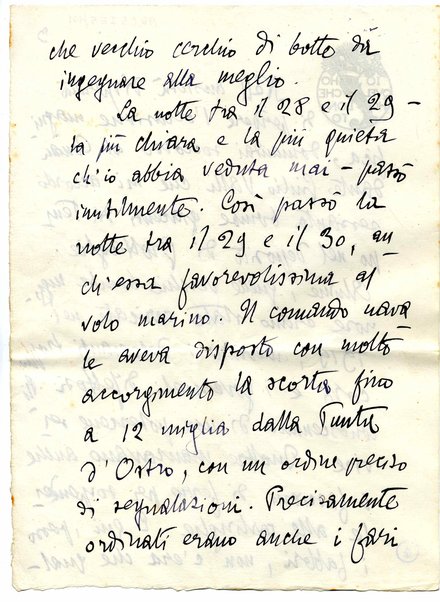 che vecchio cerchio di botte da
ingegnare alla meglio.
La notte tra il 28 e il 29 –
la più chiara e la più quieta
ch'io abbia veduta mai – passò
inutilmente. Così passò la
notte tra il 29 e il 30, an
ch'essa favorevolissima al
volo marino. Il comando nava
le aveva disposto con molto
accorgimento la scorta fino
a 12 miglia dalla Punta
d'Ostro, con un ordine preciso
di segnalazioni. Precisamente
ordinati erano anche i fari